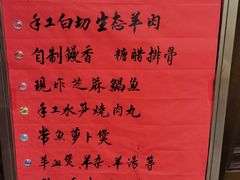 手工白切 生态羊肉
自制鳗香 糖腊排骨
现炸芝麻鳎鱼
手工水笋烧肉丸
常鱼萝卜煲
羊血煲.羊杂.羊汤等